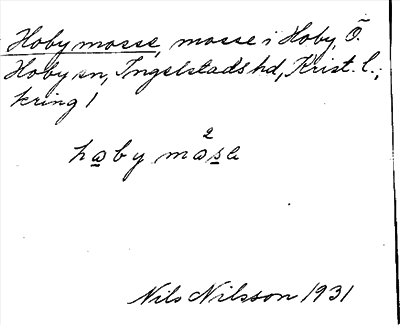 Hoby mosse, mosse i Hoby, Ö.
Hoby sn, Ingelstads hd, Krist. l.;
kring 1
hoby mo²se
Nils Nilsson 1931